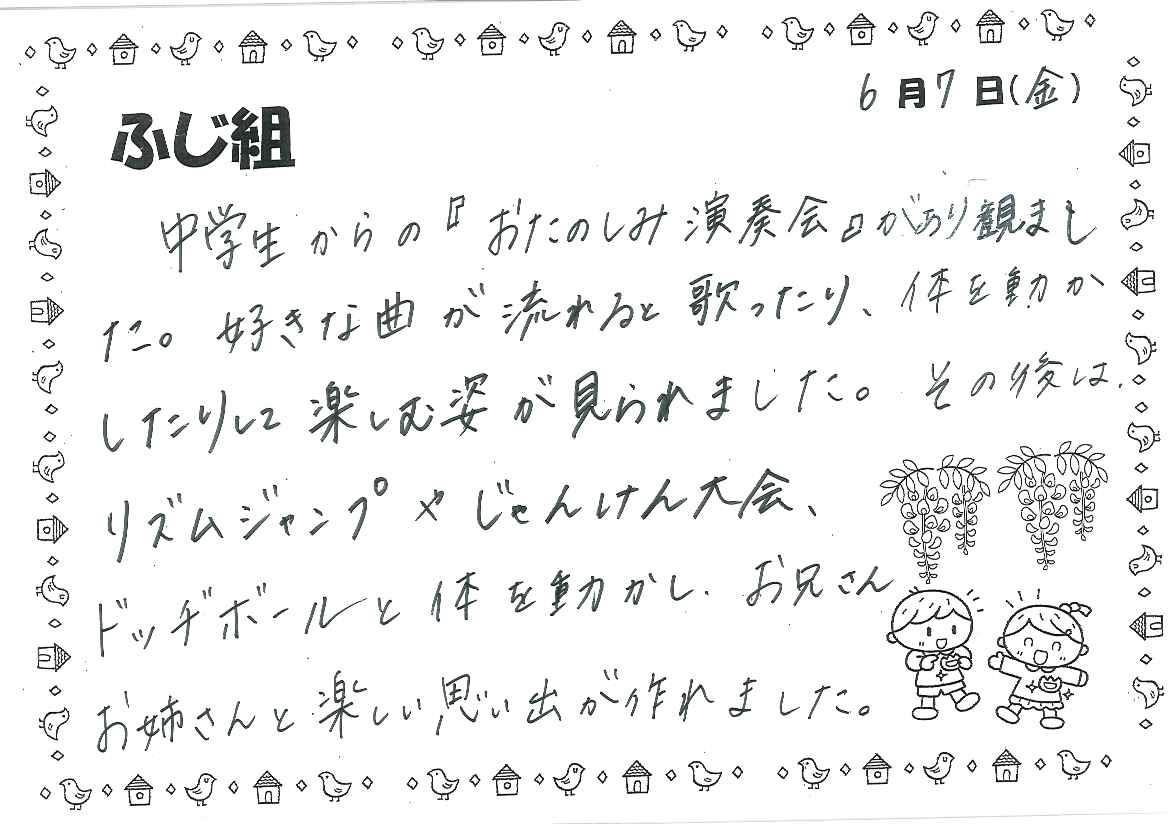 6月7日(金)
ふじ組
中学生からの『おたのしみ演奏会』があり観まし
た。好きな曲が流れると歌ったり、体を動か
したりして楽しむ姿が見られました。その後は、
リズムジャンプやじゃんけん大会、
ドッヂボールと体を動かし、お兄さん
お姉さんと楽しい思い出が作れました。